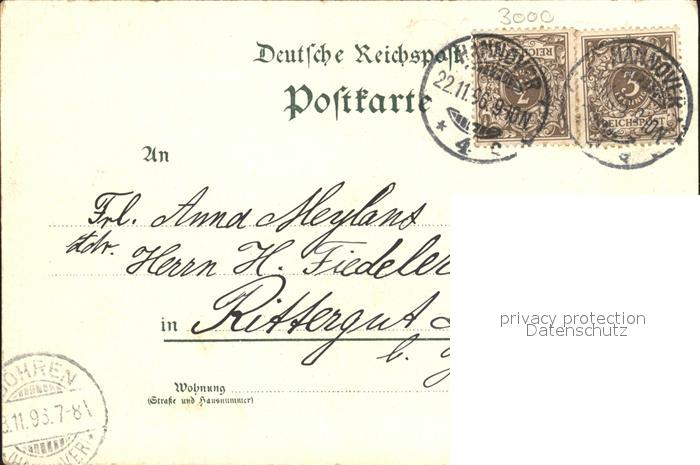 3000
Deutsche Reichspost
Postkarte
HANNOVER
22.11.96. 9-10N
* 4 c
HANNOVER
REICHSPOST
3
REICHSPOST
An
Frl. Anna Meylans
Adr. Herrn H. Fiedeler
in Rittergut
b.
Wohnung
(Straße und Hausnummer)
DÖHREN
3.11.96. 7-8V
(HANNOVER) *
privacy protection
Datenschutz